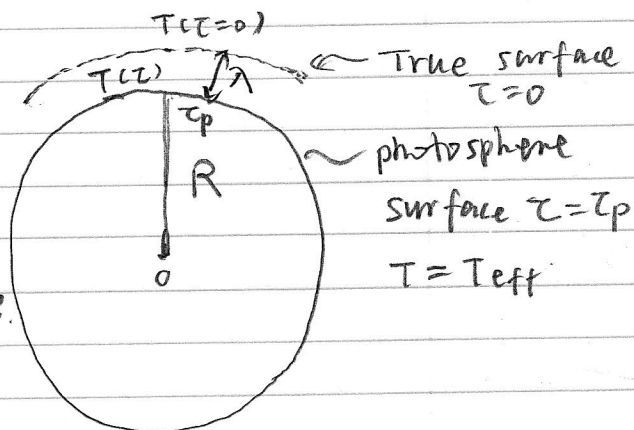 T(τ=0)
True surface
τ=0
T(τ)
λ
τp
photosphere
surface τ=τp
R
T=Teff
0